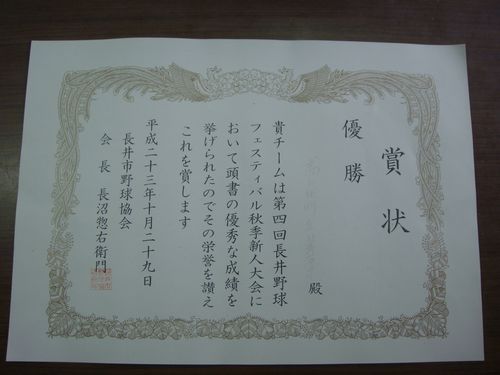 賞状
優勝
殿
貴チームは第四回長井野球
フェスティバル秋季新人大会に
おいて頭書の優秀な成績を
挙げられたのでその栄誉を讃え
これを賞します
平成二十三年十月二十九日
長井市野球協会
会長 長沼惣右衛門